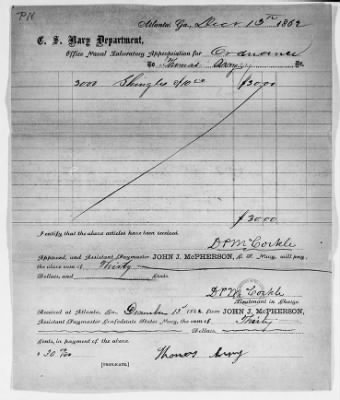 PN
Atlanta, Ga., Decr 13th 1862
C. S. Navy Department,
Office Naval Laboratory Appropriation for Ordnance
To Thomas Dr.
3000 Shingles @ $30.00
$30.00
I certify that the above articles have been received.
D P McCorkle
Approved, and Assistant Paymaster JOHN J. McPHERSON, C. S. Navy, will pay
the above sum of Thirty
Dollars, and Cents.
D P McCorkle
Lieutenant in Charge
Received at Atlanta, Ga. December 13th 1862, from JOHN J. McPHERSON,
Assistant Paymaster Confederate States Navy, the sum of Thirty
Dollars,
Cents, in payment of the above.
$ 30 00/100 Thomas
[TRIPLICATE.]